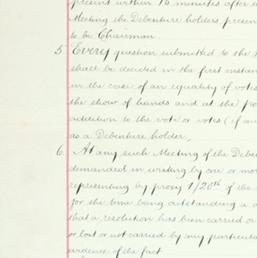 present within 15 minutes after
Meeting the Debenture holders present
to be Chairman.
5 Every question submitted to the
shall be decided in the first instan
in the case of an equality of votes
the show of hands and at the po
addition to the vote or votes (if an
as a Debenture holder,
6. At any such Meeting of the Deben
demanded in writing by one or mo
representing by proxy 1/20th of the
for the time being outstanding a d
that a resolution has been carried or
or lost or not carried by any particula
evidence of the fact